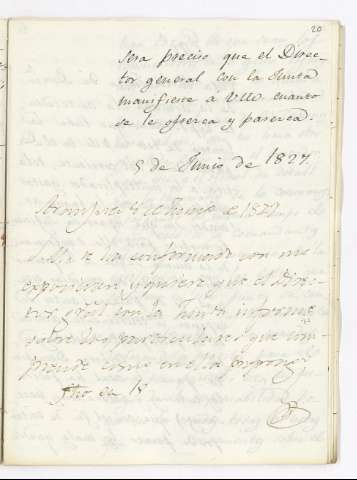 20
Sera preciso que el Direc-
tor general con la Junta
manifieste á VM cuanto
se le ofrezca y parezca.
5 de Junio de 1827.
Aranjuez de Junio de 1827
conformado con mi
exposicion y quiere que el Direc-
tor gral con la Junta informe
sobre los particulares que com-
prende
fho en 18